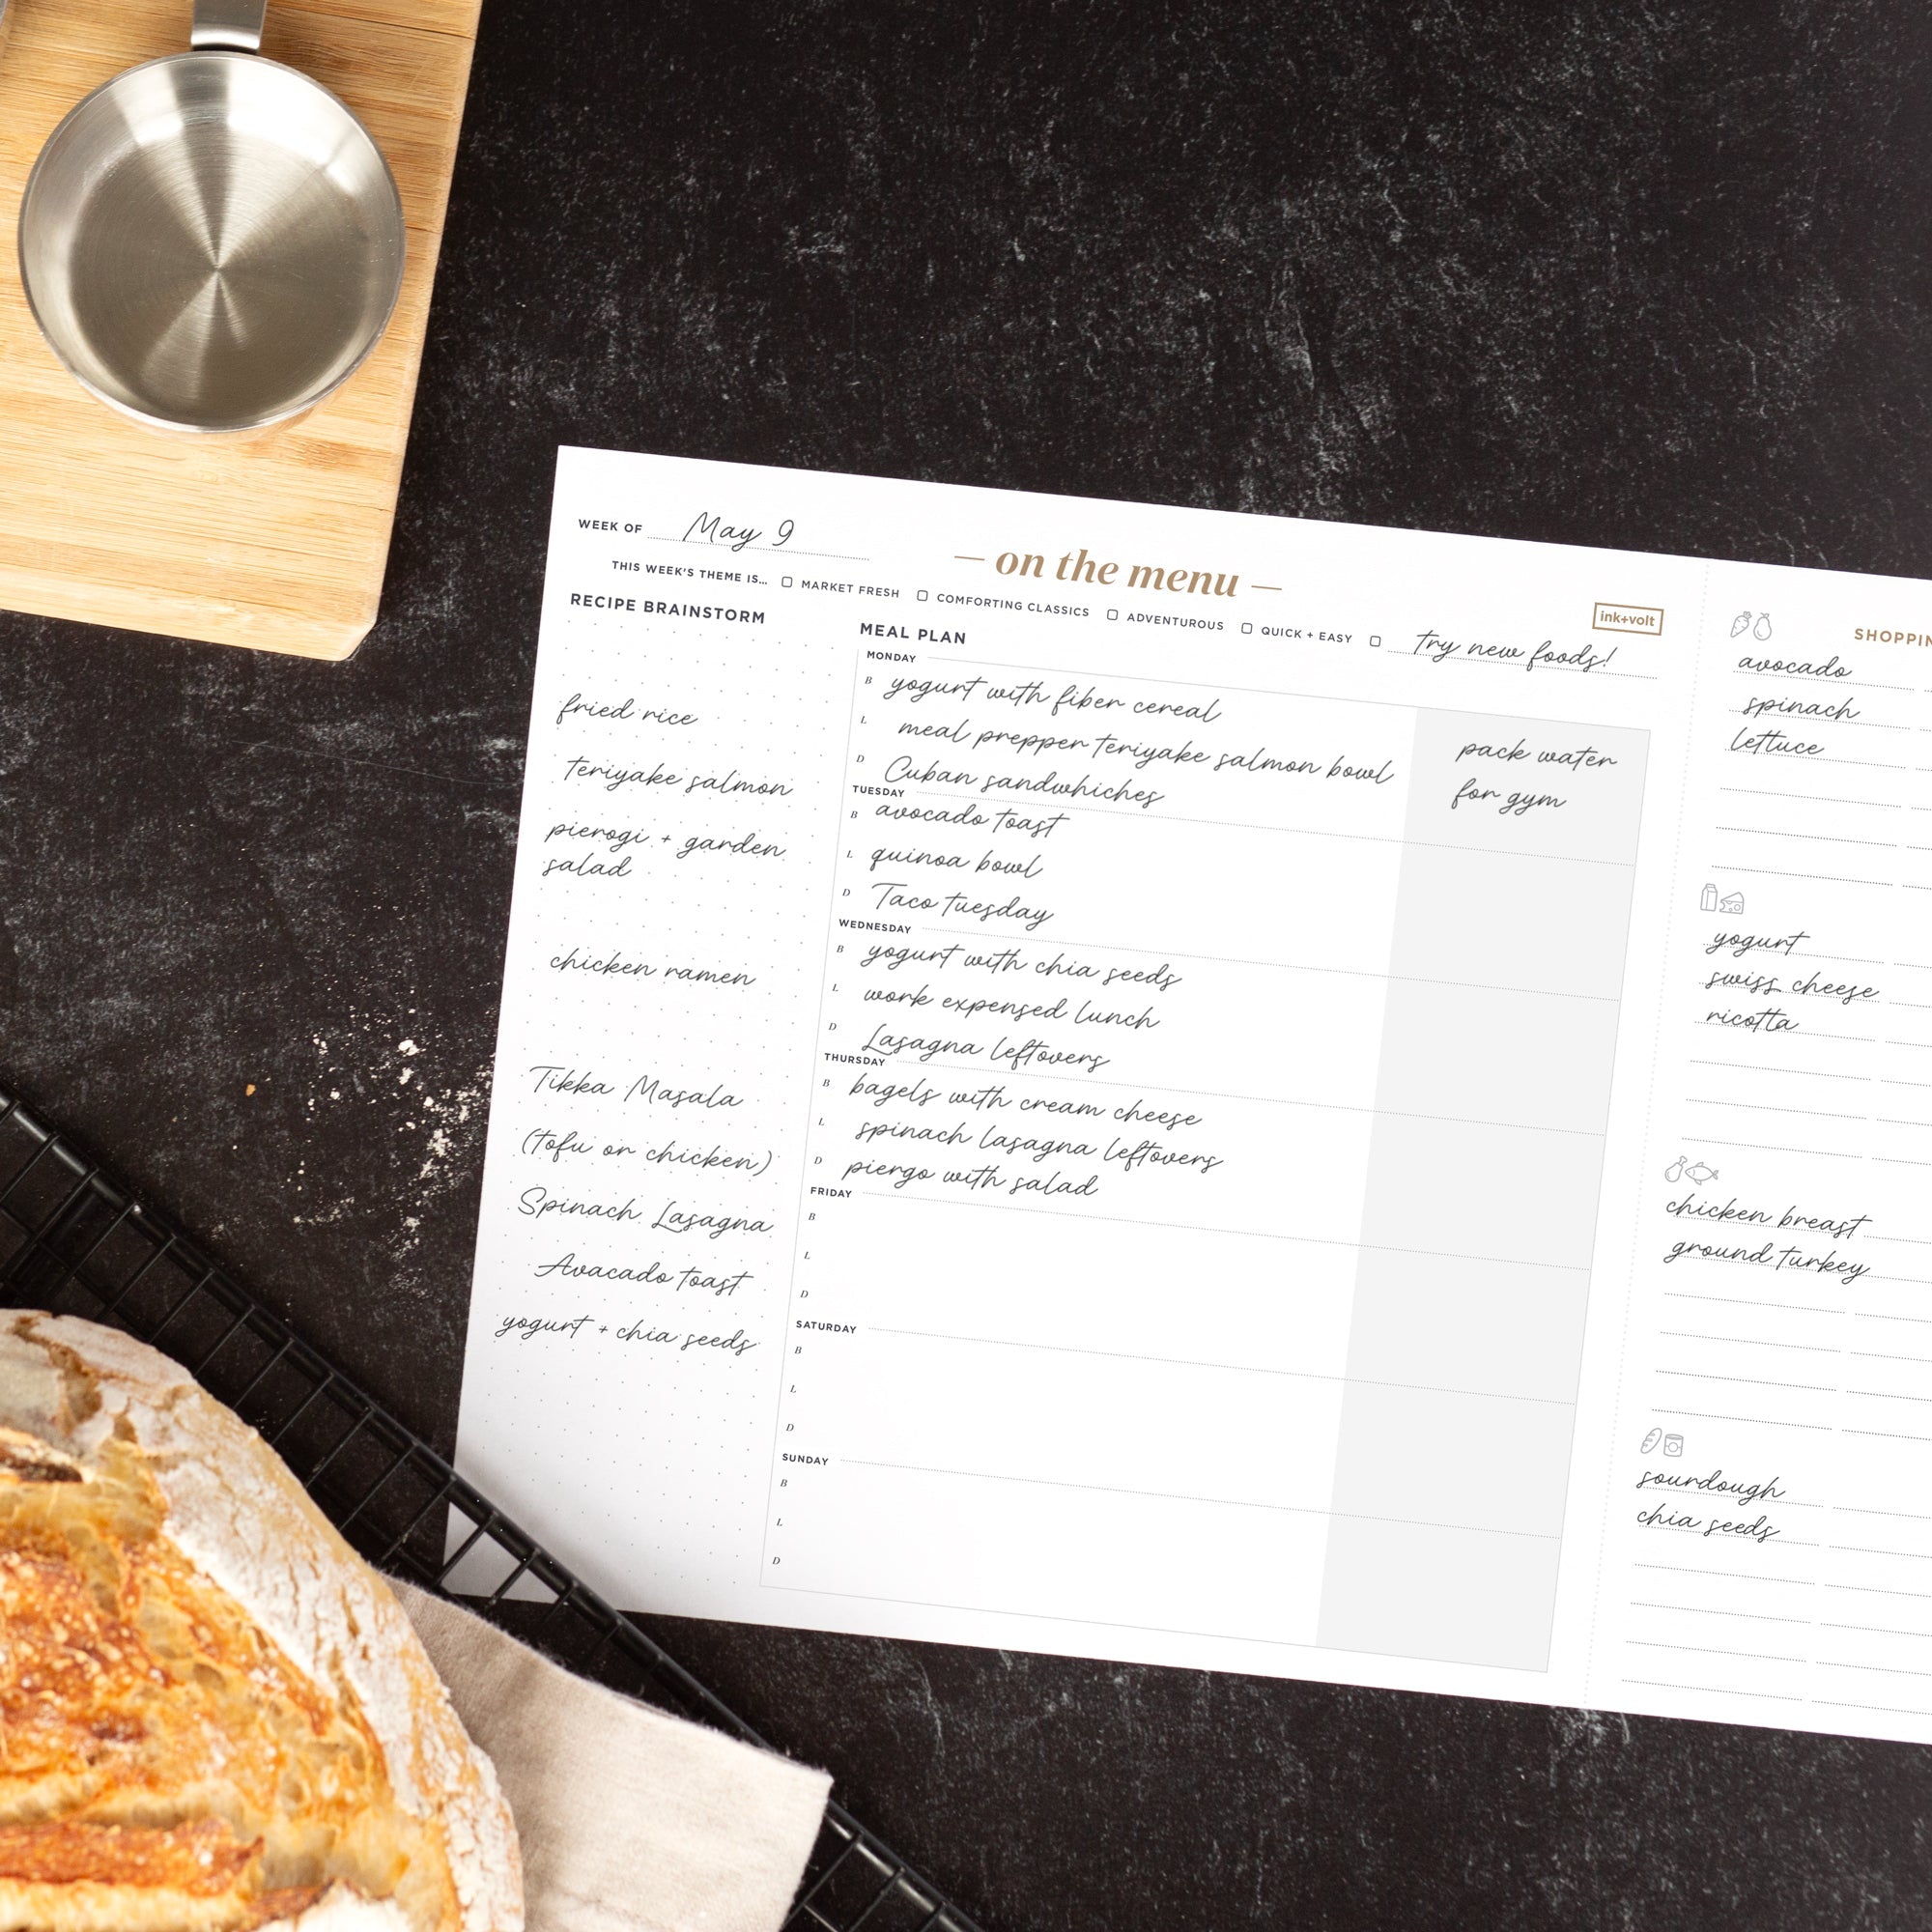 WEEK OF May 9
— on the menu —
THIS WEEK'S THEME IS... MARKET FRESH COMFORTING CLASSICS ADVENTUROUS QUICK + EASY Try new foods!
ink+volt
RECIPE BRAINSTORM
fried rice
teriyake salmon
pierogi + garden
salad
chicken ramen
Tikka Masala
(tofu or chicken)
Spinach Lasagna
Avacado toast
yogurt + chia seeds
MEAL PLAN
MONDAY
B yogurt with fiber cereal
L meal prepper teriyake salmon bowl
D Cuban sandwhiches
pack water
for gym
TUESDAY
B avocado toast
L quinoa bowl
D Taco Tuesday
WEDNESDAY
B yogurt with chia seeds
L work expensed lunch
D Lasagna leftovers
THURSDAY
B bagels with cream cheese
L spinach lasagna leftovers
D piergo with salad
FRIDAY
B
L
D
SATURDAY
B
L
D
SUNDAY
B
L
D
SHOPPIN
avocado
spinach
lettuce
yogurt
swiss cheese
ricotta
chicken breast
ground turkey
sourdough
chia seeds